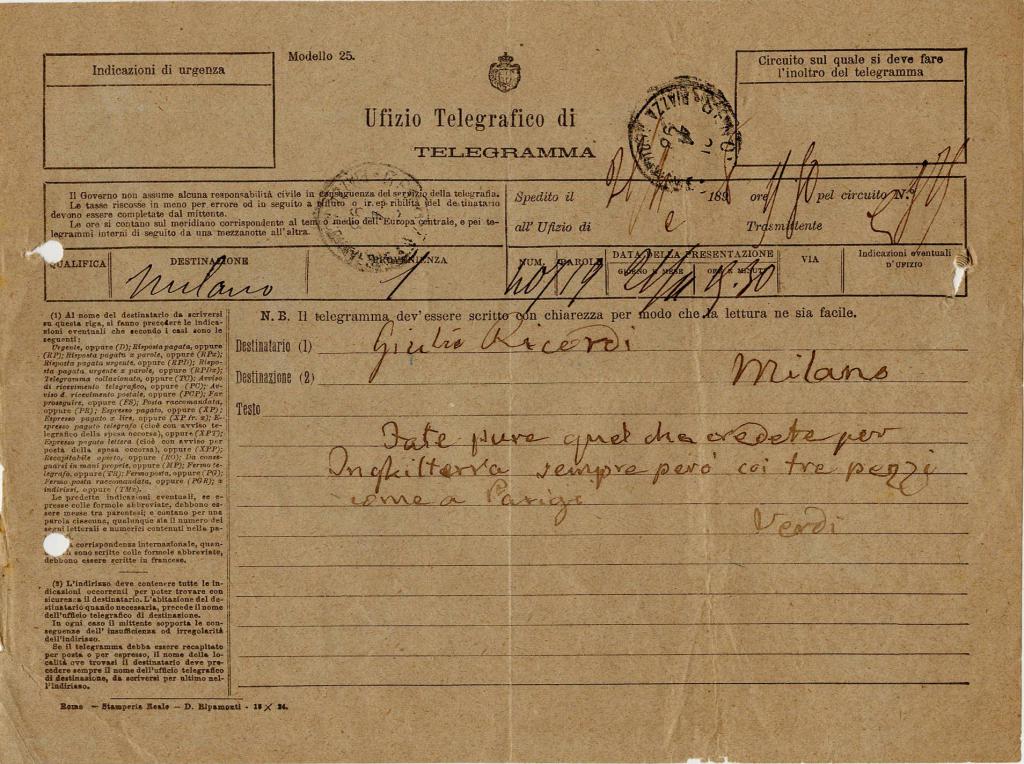 Indicazioni di urgenza
Modello 25.
Circuito sul quale si deve fare
l'inoltro del telegramma
Ufizio Telegrafico di
TELEGRAMMA
PIAZZA
Il Governo non assume alcuna responsabilità civile in conseguenza del servizio della telegrafia.
Le tasse riscosse in meno per errore od in seguito a rifiuto o irreperibilità del destinatario
devono essere completate dal mittente.
Le ore si contano sul meridiano corrispondente al tempo medio dell'Europa centrale, e pei te-
legrammi interni di seguito da una mezzanotte all'altra.
Spedito il 189 ore pel circuito N.
all' Ufizio di Trasmittente
QUALIFICA DESTINAZIONE PROVENIENZA NUM. PAROLE DATA DELLA PRESENTAZIONE VIA Indicazioni eventuali
GIORNO E MESE ORE E MINUTI D'UFIZIO
Milano 1 40 19 9.30
N. B. Il telegramma dev'essere scritto con chiarezza per modo che la lettura ne sia facile.
Destinatario (1) Giulio Ricordi
Destinazione (2) Milano
Testo
Fate pure quel che credete per
Inghilterra sempre però coi tre pezzi
come a Parigi
Verdi
(1) Al nome del destinatario da scriversi
su questa riga, si fanno precedere le indica-
zioni eventuali che secondo i casi sono le
seguenti:
Urgente, oppure (D); Risposta pagata, oppure
(RP); Risposta pagata x parole, oppure (RPx);
Risposta pagata urgente, oppure (RPD); Rispo-
sta pagata urgente x parole, oppure (RPDx);
Telegramma collazionato, oppure (TC); Avviso
di ricevimento telegrafico, oppure (PC); Av-
viso d. ricevimento postale, oppure (PCP); Far
proseguire, oppure (FS); Posta raccomandata,
oppure (PR); Espresso pagato, oppure (XP);
Espresso pagato x lire, oppure (XP fr. x); E-
spresso pagato telegrafo (cioè con avviso te-
legrafico della spesa occorsa), oppure (XPT);
Espresso pagato lettera (cioè con avviso per
posta della spesa occorsa), oppure (XPP);
Recapitabile aperto, oppure (RO); Da conse-
gnarsi in mani proprie, oppure (MP); Fermo te-
legrafo, oppure (TR); Fermo posta, oppure (PG);
Fermo posta raccomandata, oppure (PGR); x
indirizzi, oppure (TMx).
Le predette indicazioni eventuali, se e-
spresse colle formole abbreviate, debbono
essere messe tra parentesi; e contano per una
parola ciascuna, qualunque sia il numero dei
segni letterali e numerici contenuti nella pa-
a corrispondenza internazionale, quan-
sono scritte colle formole abbreviate,
debbono essere scritte in francese.
(2) L'indirizzo deve contenere tutte le in-
dicazioni occorrenti per poter trovare con
sicurezza il destinatario. L'abitazione del de-
stinatario quando necessaria, precede il nome
dell'ufficio telegrafico di destinazione.
In ogni caso il mittente sopporta le con-
seguenze dell'insufficienza od irregolarità
dell'indirizzo.
Se il telegramma debba essere recapitato
per posta o per espresso, il nome della lo-
calità ove trovasi il destinatario deve pre-
cedere sempre il nome dell'ufficio telegrafico
di destinazione, da scriversi per ultimo nel-
l'indirizzo.
Roma — Stamperia Reale — D. Ripamonti -